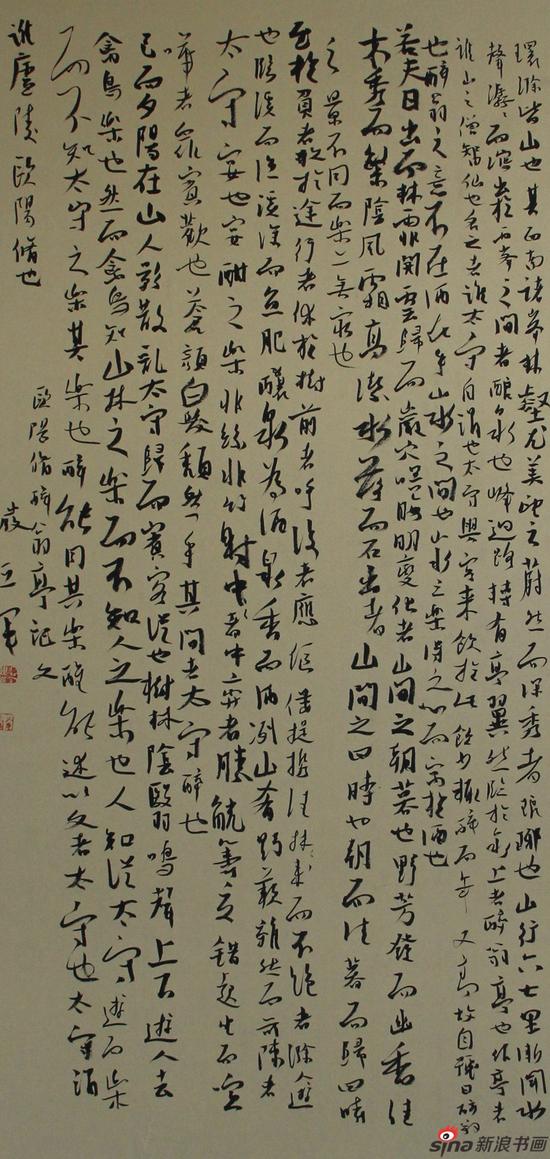 環滁皆山也其西南諸峯林壑尤美望之蔚然而深秀者琅琊也山行六七里漸聞水
聲潺〻而瀉出於兩峯之間者釀泉也峰迴路轉有亭翼然臨於泉上者醉翁亭也作亭者
誰山之僧智仙也名之者誰太守自謂也太守與客來飲於此飲少輒醉而年又高故自號曰醉翁
也醉翁之意不在酒在乎山水之間也山水之樂得之心而寓於酒也
若夫日出而林霏開雲歸而巖穴暝晦明變化者山間之朝暮也野芳發而幽香佳
木秀而繁陰風霜高潔水落而石出者山間之四時也朝而往暮而歸四時
之景不同而樂亦無窮也
至於負者歌於途行者休於樹前者呼後者應傴僂提攜往來而不絕者滁人遊
也臨溪而漁溪深而魚肥釀泉為酒泉香而酒冽山肴野蔌雜然而前陳者
太守宴也宴酣之樂非絲非竹射者中弈者勝觥籌交錯起坐而喧
譁者眾賓歡也蒼顏白髮頹然乎其間者太守醉也
已而夕陽在山人影散亂太守歸而賓客從也樹林陰翳鳴聲上下遊人去
禽鳥樂也然而禽鳥知山林之樂而不知人之樂也人知從太守遊而樂
而不知太守之樂其樂也醉能同其樂醒能述以文者太守也太守謂
誰廬陵歐陽脩也
歐陽脩醉翁亭記文
sina新浪书画